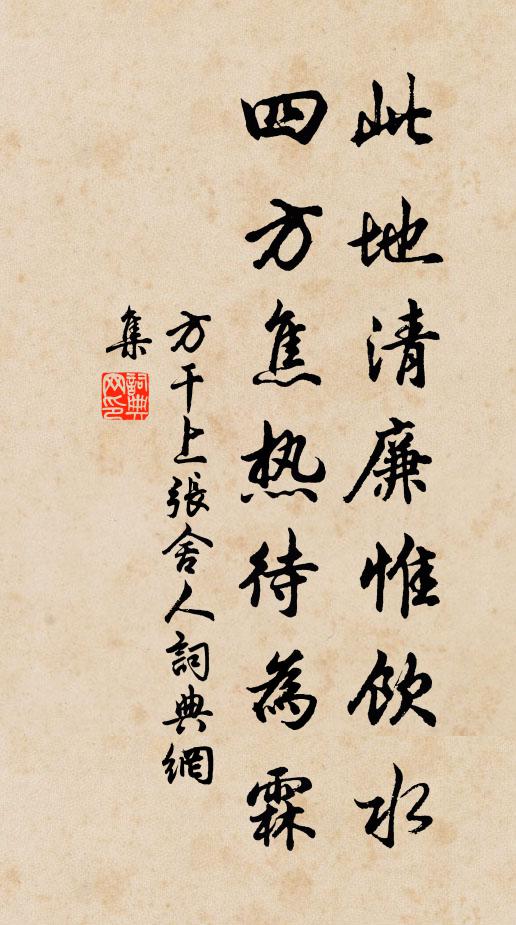 此地清廉惟飲水
四方焦热待為霖
方干上張舍人詞典網
集
詞典
网印